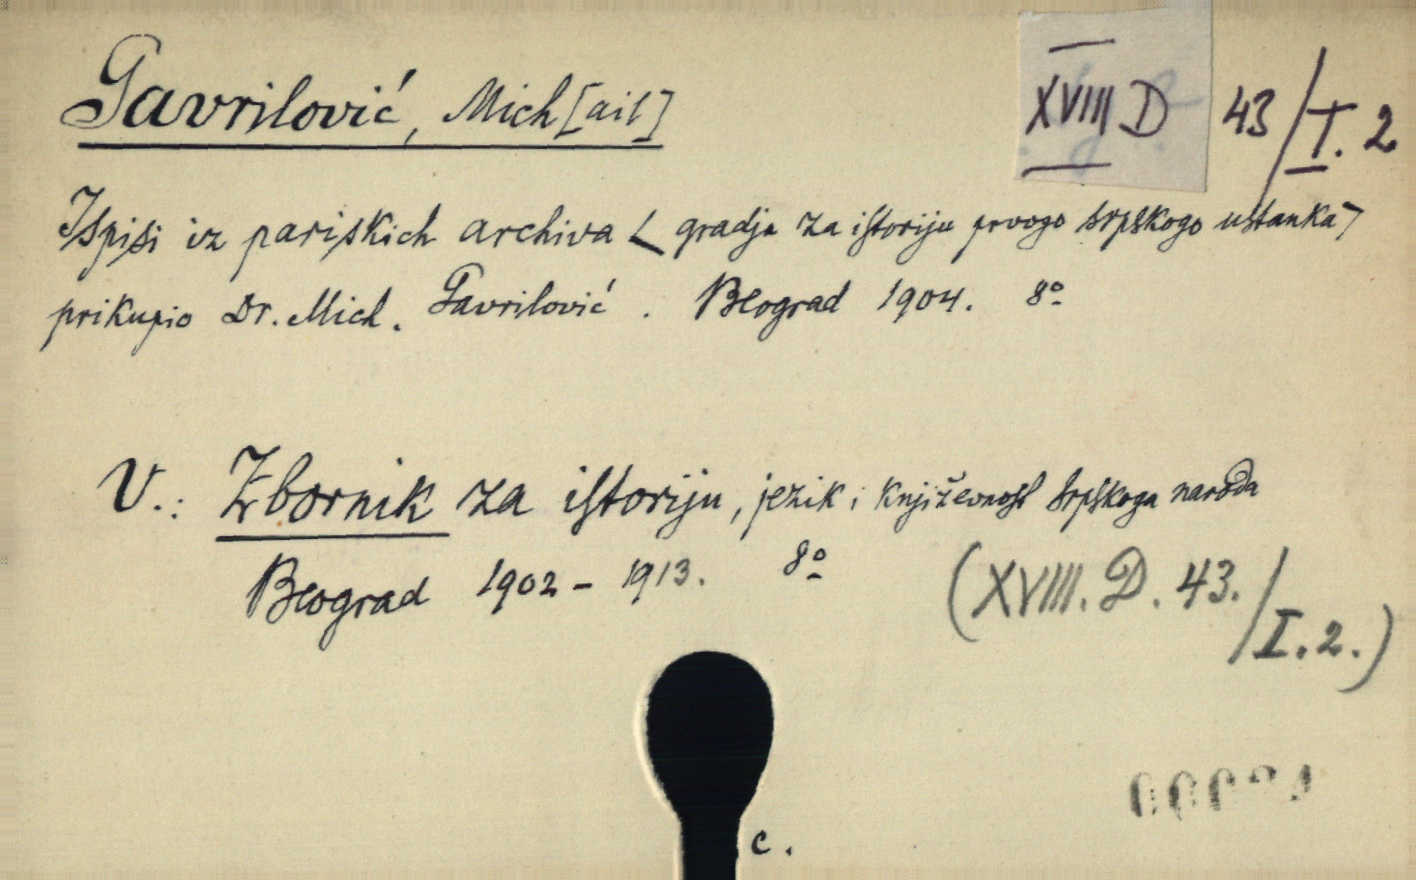 Gavrilović, Mich[ail]
XVIII D 43/I. 2
Ispisi iz pariskich archiva < gradja za istoriju prvogo srpskogo ustanka >
prikupio Dr. Mich. Gavrilović. Beograd 1904. 8º
V.: Zbornik za istoriju, jezik i književnost srpskoga naroda
Beograd 1902 - 1913. 8º
(XVIII. D. 43./I. 2.)
c.